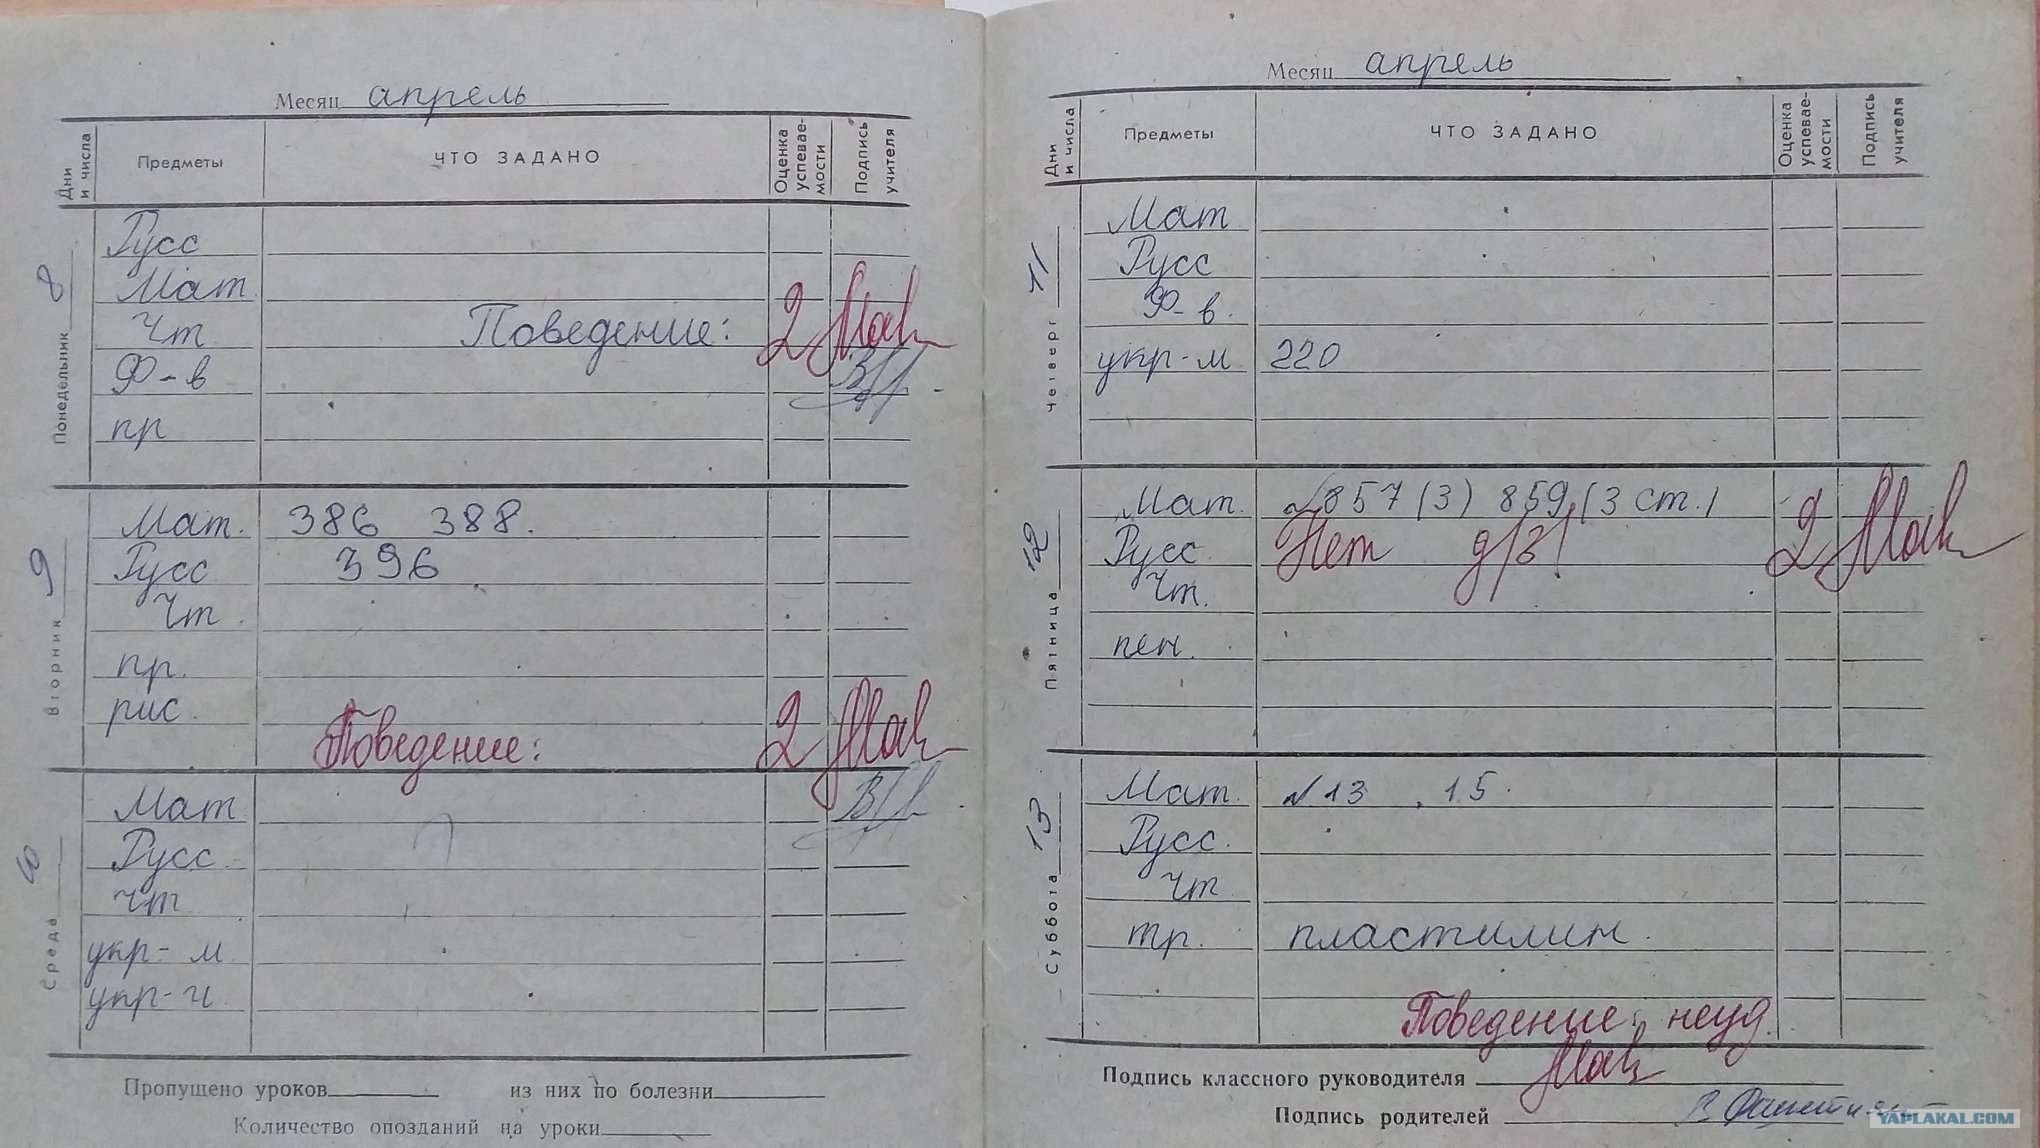 Месяц апрель
Дни и числа
Предметы
ЧТО ЗАДАНО
Оценка успевае-мости
Подпись учителя
Понедельник 8
Русс
Мат.
Чт Поведение: 2
Ф-в
пр
Вторник 9
Мат. 386 388.
Русс 396
Чт.
пр.
рис.
Поведение: 2
Среда 10
Мат
Русс.
Чт
укр-м
укр-ч
Пропущено уроков из них по болезни
Количество опозданий на уроки
Месяц апрель
Дни и числа
Предметы
ЧТО ЗАДАНО
Оценка успевае-мости
Подпись учителя
Четверг 11
Мат
Русс
Ф-в.
укр-м. 220
Пятница 12
Мат. №857 (3) 859 (3 ст.)
Русс. Нет д/з! 2
Чт.
пен.
Суббота 13
Мат. №13, 15.
Русс.
Чт
тр. пластилин.
Поведение: неуд.
Подпись классного руководителя
Подпись родителей
YAPLAKAL.COM